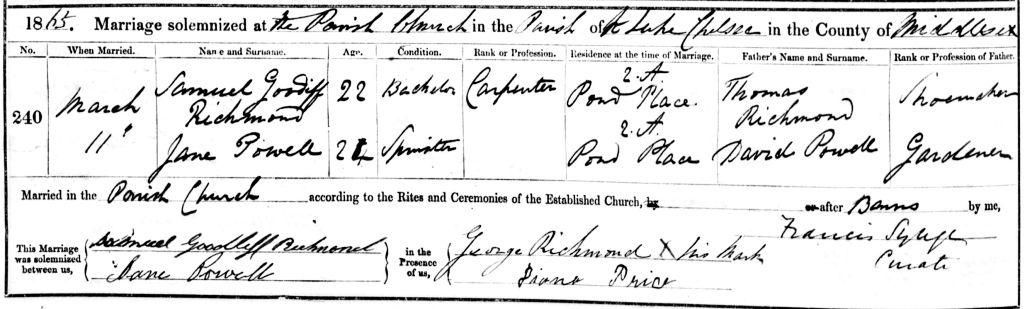 1865. Marriage solemnized at the Parish Church in the Parish of St Luke Chelsea in the County of Middlesex
No. When Married. Name and Surname. Age. Condition. Rank or Profession. Residence at the time of Marriage. Father's Name and Surname. Rank or Profession of Father.
240 March 11" Samuel Goodiff Richmond 22 Bachelor Carpenter 2. A. Pond Place. Thomas Richmond Shoemaker
Jane Powell 24 Spinster 2. A. Pond Place David Powell Gardener
Married in the Parish Church according to the Rites and Ceremonies of the Established Church, by or after Banns by me,
Francis Curate
This Marriage was solemnized between us, Samuel Goodliff Richmond in the Presence of us, George Richmond X his Mark
Jane Powell Price